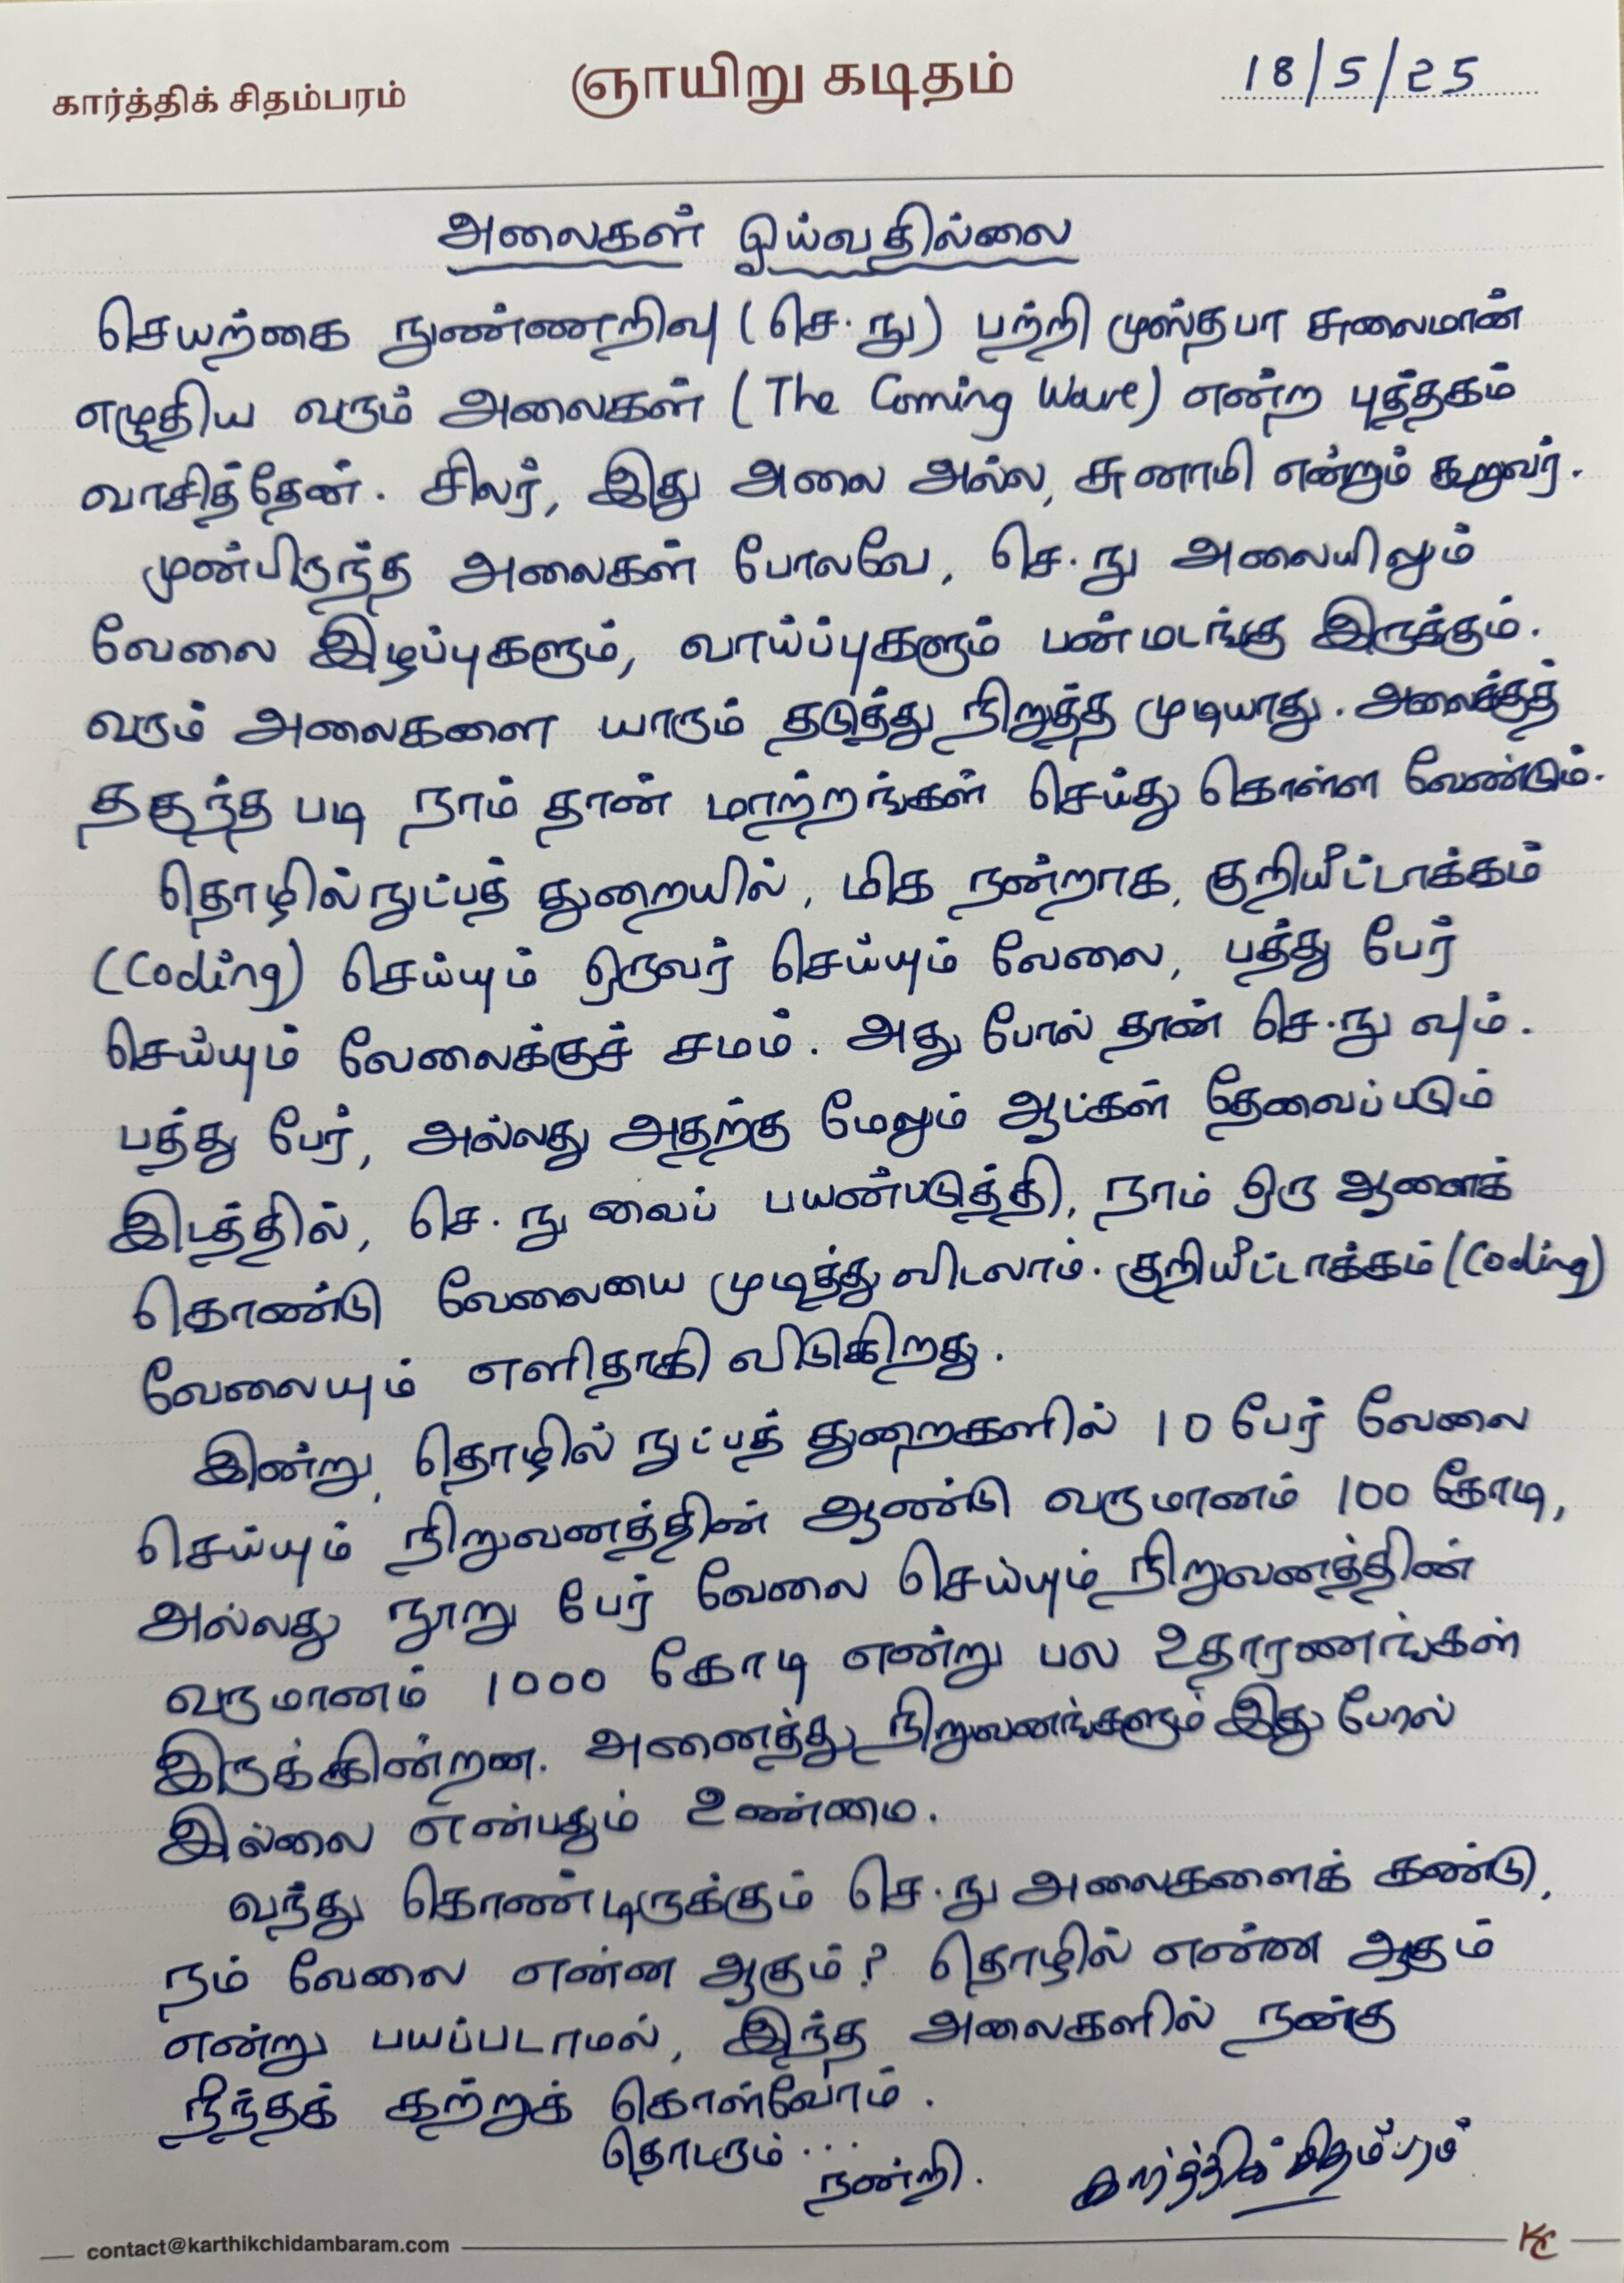 கார்த்திக் சிதம்பரம்
ஞாயிறு கடிதம்
18/5/25
அலைகள் ஓய்வதில்லை
செயற்கை நுண்ணறிவு (செ.நு) பற்றி முஸ்தபா சுலைமான்
எழுதிய வரும் அலைகள் (The Coming Wave) என்ற புத்தகம்
வாசித்தேன். சிலர், இது அலை அல்ல, சுனாமி என்றும் கூறுவர்.
முன்பிருந்த அலைகள் போலவே, செ.நு அலையிலும்
வேலை இழப்புகளும், வாய்ப்புகளும் பன்மடங்கு இருக்கும்.
வரும் அலைகளை யாரும் தடுத்து நிறுத்த முடியாது. அலைக்குத்
தகுந்த படி நாம் தான் மாற்றங்கள் செய்து கொள்ள வேண்டும்.
தொழில்நுட்பத் துறையில், மிக நன்றாக, குறியீட்டாக்கம்
(Coding) செய்யும் ஒருவர் செய்யும் வேலை, பத்து பேர்
செய்யும் வேலைக்குச் சமம். அது போல் தான் செ.நு வும்.
பத்து பேர், அல்லது அதற்கு மேலும் ஆட்கள் தேவைப்படும்
இடத்தில், செ.நு வைப் பயன்படுத்தி, நாம் ஒரு ஆளைக்
கொண்டு வேலையை முடித்து விடலாம். குறியீட்டாக்கம் (Coding)
வேலையும் எளிதாகி விடுகிறது.
இன்று, தொழில் நுட்பத் துறைகளில் 10 பேர் வேலை
செய்யும் நிறுவனத்தின் ஆண்டு வருமானம் 100 கோடி,
அல்லது நூறு பேர் வேலை செய்யும் நிறுவனத்தின்
வருமானம் 1000 கோடி என்று பல உதாரணங்கள்
இருக்கின்றன. அனைத்து நிறுவனங்களும் இது போல்
இல்லை என்பதும் உண்மை.
வந்து கொண்டிருக்கும் செ.நு அலைகளைக் கண்டு,
நம் வேலை என்ன ஆகும்? தொழில் என்ன ஆகும்
என்று பயப்படாமல், இந்த அலைகளில் நன்கு
நீந்தக் கற்றுக் கொள்வோம்.
தொடரும்...
நன்றி.
கார்த்திக் சிதம்பரம்
contact@karthikchidambaram.com
KC